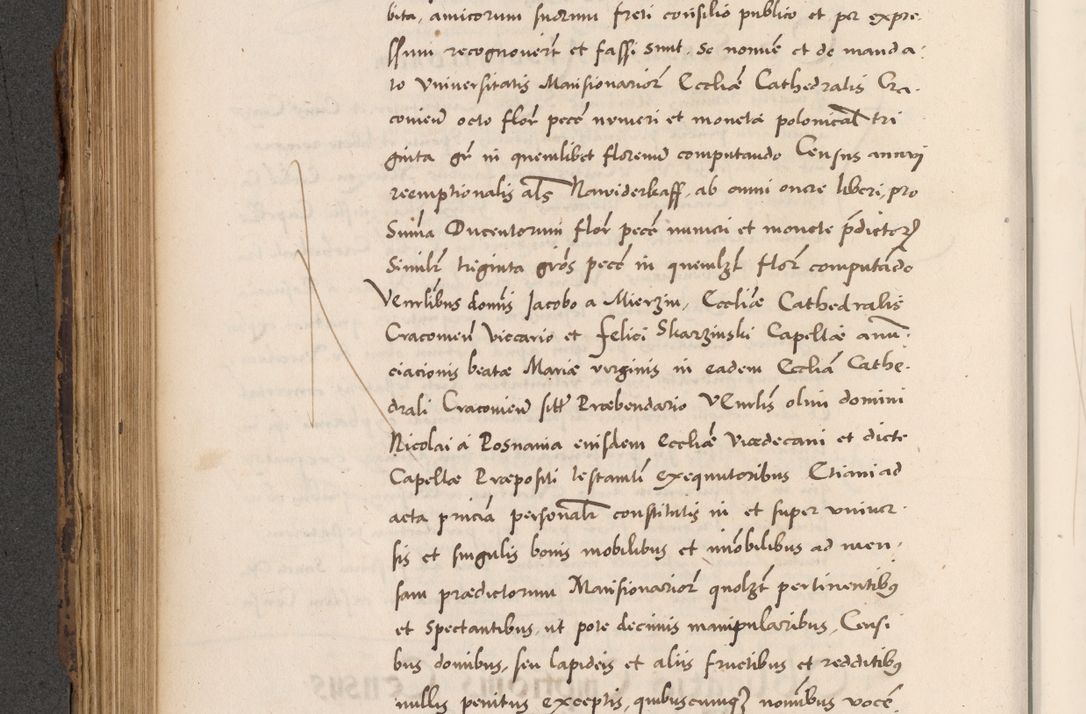 bita, amicorum suorum freti consilio publico et per expre-
ssum recognoverūt et fassi sunt. Se nomīe et de manda-
to Universitatis Mansionarior̄ Eccliæ Cathedralis Cra-
covieñ octo flor̄ pecē numeri et monetæ polonicaƚ tri
ginta gr̄ in quemlibet florenū computando Census annui
reemptionalis aƚs Nawiderkaff, ab omni onere liberi, pro
Sum̄a Ducentorum flor̄ pecē numeri et monete p̄dictorȝ
Similr̄ triginta grōs pecē in quemlȝt flor̄ computādo
Venrlibus domīs Jacobo a Mierzin, Eccliæ Cathedralis
Cracovieñ Viccario et Felici Skarzinski Capellæ anū-
ciacionis beatæ Mariæ virginis in eadem Ecclīa Cathe-
drali Cracovieñ sitæ Præbendario Venrlis olim domini
Nicolai á Posnania eiusdem Eccliæ Vicedecani et dicte
Capellæ Præpositi testamti exequutoribus Etiam ad
acta prn̄cia personalr̄ constitutis in et super univer-
sis et singulis bonis mobilibus et im̄obilibus ad men-
sam prædictorum Mansionarior̄ quolȝt pertinentibȝ
et Spectantibus, ut pote decimis manipularibus, Censi
bus domibus, seu lapideis et aliis fructibus et redditibȝ
nullis penitus exceptis, quibuscumqȝ nom̄ibus vocē